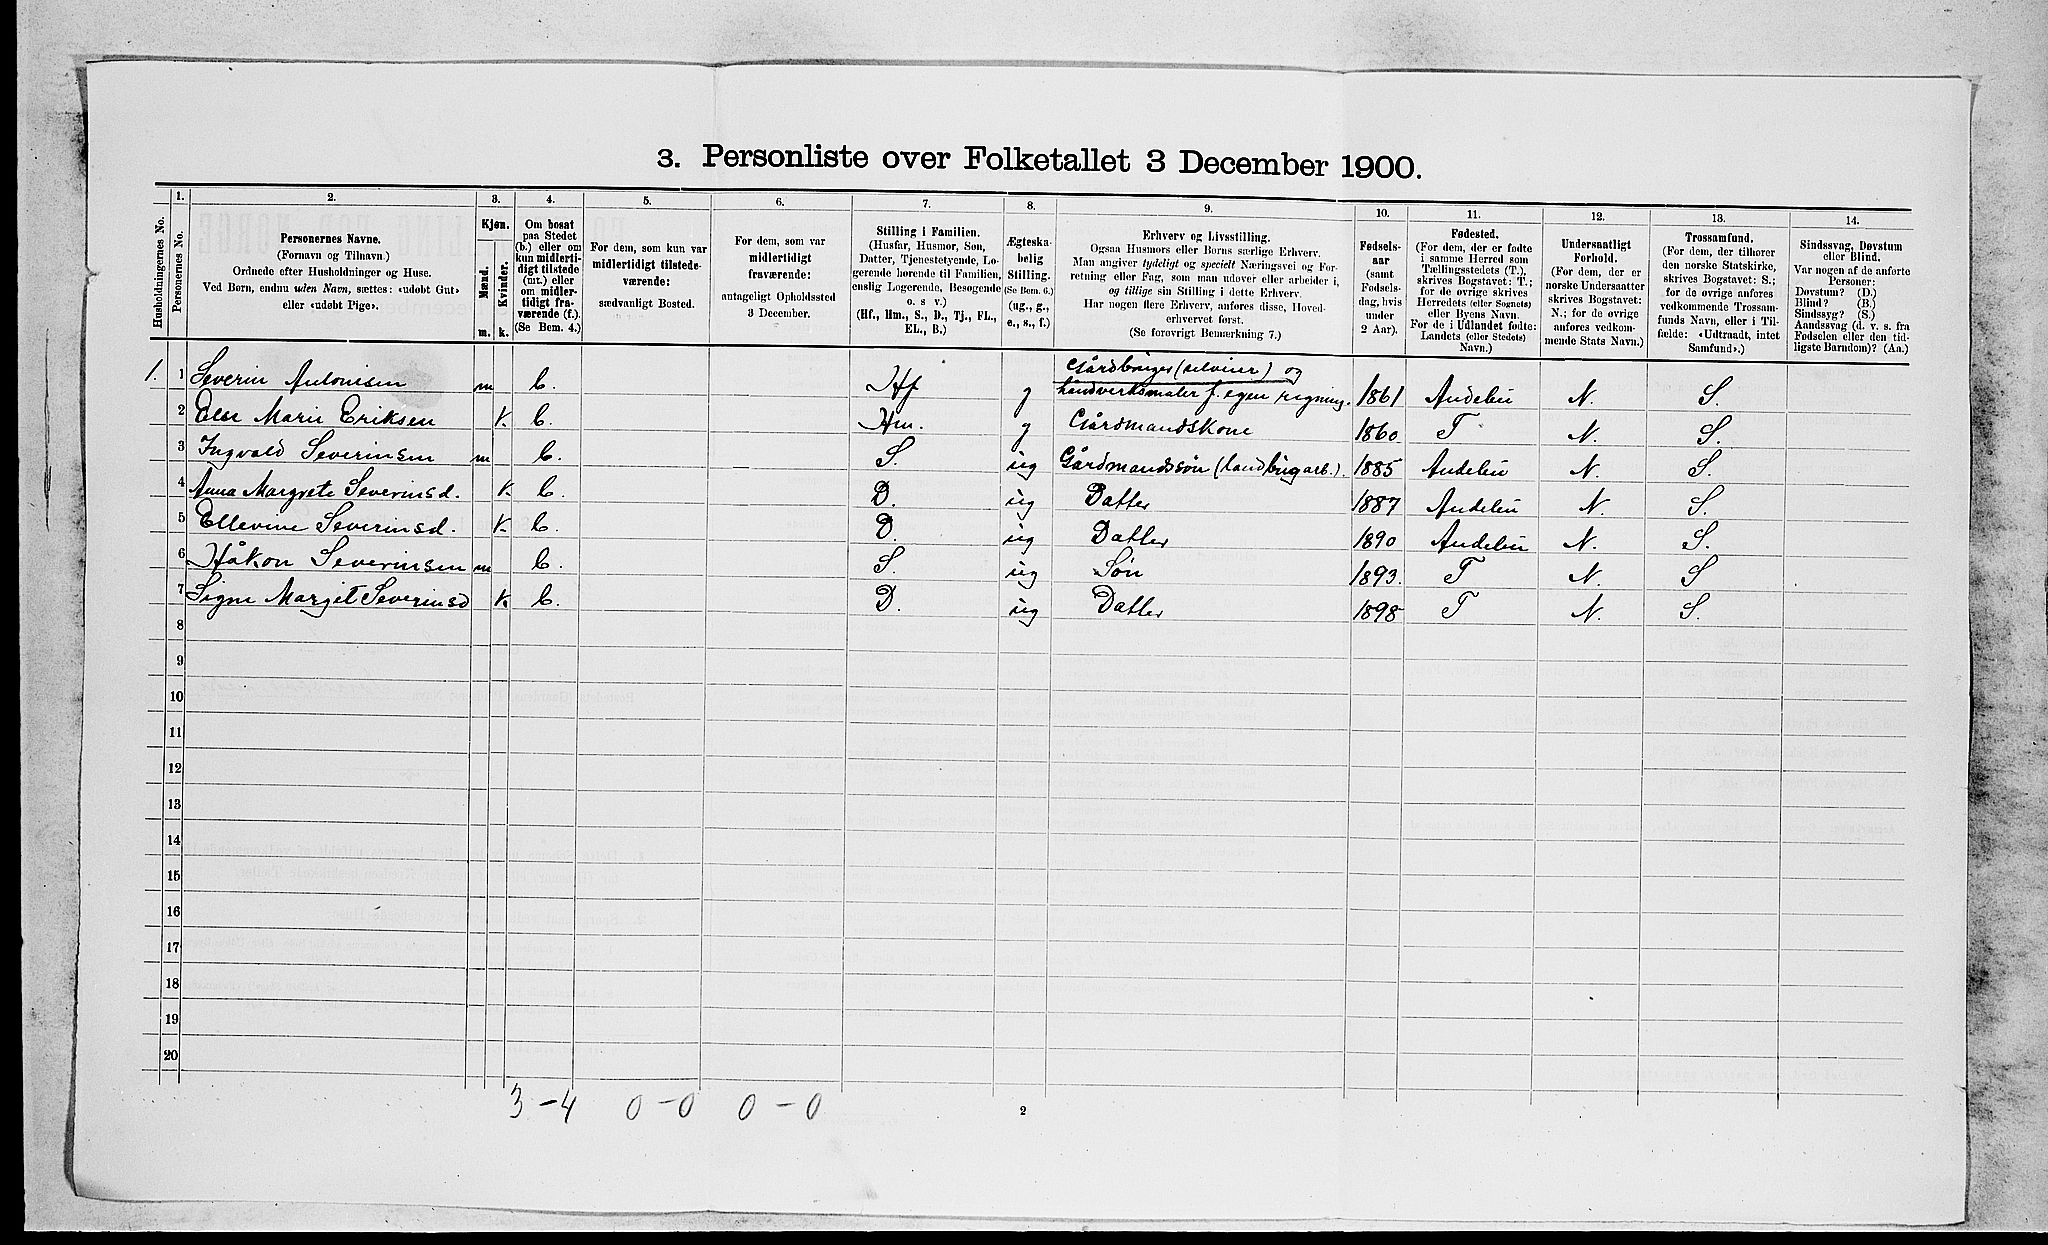 3. Personliste over Folketallet 3 December 1900.
Husholdningernes No.
1.
Personernes No.
2.
Personernes Navne.
(Fornavn og Tilnavn.)
Ordnede efter Husholdninger og Huse.
Ved Børn, endnu uden Navn, sættes: «udøbt Gut»
eller «udøbt Pige».
3.
Kjøn.
Mænd.
Kvinder.
m. k.
4.
Om bosat
paa Stedet
(b.) eller om
kun midlerti-
digt tilstede
(mt.) eller
om midler-
tidigt fra-
værende (f.).
(Se Bem. 4.)
5.
For dem, som kun var
midlertidigt tilstede-
værende:
sædvanligt Bosted.
6.
For dem, som var
midlertidigt
fraværende:
antageligt Opholdssted
3 December.
7.
Stilling i Familien.
(Husfar, Husmor, Søn,
Datter, Tjenestetyende, Lo-
gerende hørende til Familien,
enslig Logerende, Besøgende
o. s v.)
(Hf., Hm., S., D., Tj., FL.,
EL., B.)
8.
Ægteska-
belig
Stilling.
(Se Bem. 6.)
(ug., g.,
e., s., f.)
9.
Erhverv og Livsstilling.
Ogsaa Husmors eller Børns særlige Erhverv.
Man angiver tydeligt og specielt Næringsvei og For-
retning eller Fag, som man udøver eller arbeider i,
og tillige sin Stilling i dette Erhverv.
Har nogen flere Erhverv, anføres disse, Hoved-
erhvervet først.
(Se forøvrigt Bemærkning 7.)
10.
Fødsels-
aar
(samt
Fødsels-
dag, hvis
under
2 Aar).
11.
Fødested.
(For dem, der er fødte
i samme Herred som
Tællingsstedets (T.),
skrives Bogstavet: T.;
for de øvrige skrives
Herredets (eller Sognets)
eller Byens Navn.
For de i Udlandet fødte:
Landets (eller Stedets)
Navn.)
12.
Undersaatligt
Forhold.
(For dem, der er
norske Undersaatter
skrives Bogstavet:
N.; for de øvrige
anføres vedkom-
mende Stats Navn.)
13.
Trossamfund.
(For dem, der tilhører
den norske Statskirke,
skrives Bogstavet: S.;
for de øvrige anføres
vedkommende Trossam-
funds Navn, eller i Til-
fælde: «Udtraadt, intet
Samfund».)
14.
Sindssvag, Døvstum
eller Blind.
Var nogen af de anførte
Personer:
Døvstum? (D.)
Blind? (B.)
Sindssyg? (S.)
Aandssvag (d. v. s. fra
Fødselen eller den tid-
ligste Barndom)? (Aa.)
1. 1 Severin Antonisen m b. Hf g Gårdbruger (selveier) og håndverksmaler f. egen regning. 1861 Andebu N. S.
2 Else Marie Eriksen k. b. Hm. g Gårdmandskone 1860 T N. S.
3 Ingvald Severinsen m b. S. ug Gårdmandssøn (landbrugarb.). 1885 Andebu N. S.
4 Anna Margrete Severinsd. k. b. D. ug Datter 1887 Andebu N. S.
5 Ellevine Severinsd. k. b. D. ug Datter 1890 Andebu N. S.
6 Håkon Severinsen m b. S. ug Søn 1893. T N. S
7 Signe Margit Severinsd k. b. D. ug Datter 1898 T N. S.
8
9
10
11
12
13
14
15
16
17
18
19
20
3 - 4 0 - 0 0 - 0
2